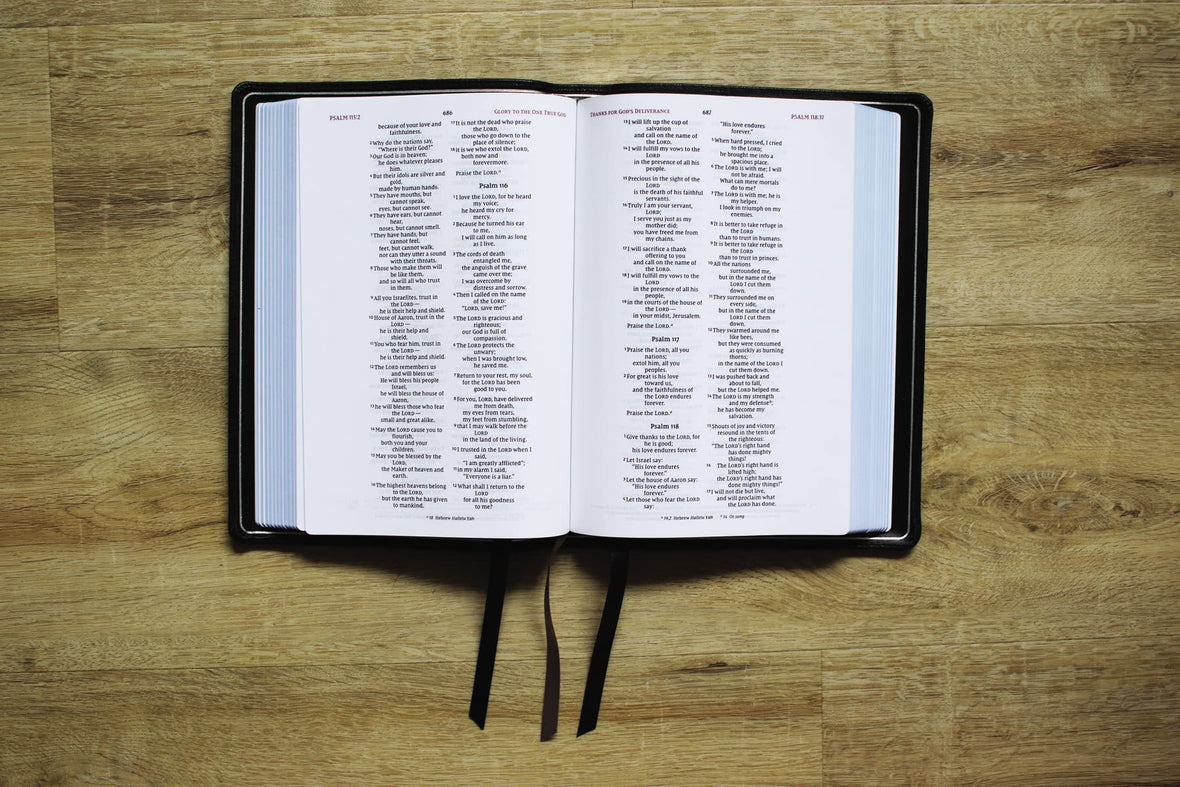 PSALM 115:2
686
GLORY TO THE ONE TRUE GOD
because of your love and
faithfulness.
2 Why do the nations say,
"Where is their God?"
3 Our God is in heaven;
he does whatever pleases
him.
4 But their idols are silver and
gold,
made by human hands.
5 They have mouths, but
cannot speak,
eyes, but cannot see.
6 They have ears, but cannot
hear,
noses, but cannot smell.
7 They have hands, but
cannot feel,
feet, but cannot walk,
nor can they utter a sound
with their throats.
8 Those who make them will
be like them,
and so will all who trust
in them.
9 All you Israelites, trust in
the LORD—
he is their help and shield.
10 House of Aaron, trust in the
LORD—
he is their help and
shield.
11 You who fear him, trust in
the LORD—
he is their help and shield.
12 The LORD remembers us
and will bless us:
He will bless his people
Israel,
he will bless the house of
Aaron,
13 he will bless those who fear
the LORD—
small and great alike.
14 May the LORD cause you to
flourish,
both you and your
children.
15 May you be blessed by the
LORD,
the Maker of heaven and
earth.
16 The highest heavens belong
to the LORD,
but the earth he has given
to mankind.
17 It is not the dead who praise
the LORD,
those who go down to the
place of silence;
18 it is we who extol the LORD,
both now and
forevermore.
Praise the LORD.a
Psalm 116
1 I love the LORD, for he heard
my voice;
he heard my cry for
mercy.
2 Because he turned his ear
to me,
I will call on him as long
as I live.
3 The cords of death
entangled me,
the anguish of the grave
came over me;
I was overcome by
distress and sorrow.
4 Then I called on the name
of the LORD:
"LORD, save me!"
5 The LORD is gracious and
righteous;
our God is full of
compassion.
6 The LORD protects the
unwary;
when I was brought low,
he saved me.
7 Return to your rest, my soul,
for the LORD has been
good to you.
8 For you, LORD, have delivered
me from death,
my eyes from tears,
my feet from stumbling,
9 that I may walk before the
LORD
in the land of the living.
10 I trusted in the LORD when I
said,
"I am greatly afflicted";
11 in my alarm I said,
"Everyone is a liar."
12 What shall I return to the
LORD
for all his goodness
to me?
a 18 Hebrew Hallelu Yah
THANKS FOR GOD'S DELIVERANCE
687
PSALM 118:17
13 I will lift up the cup of
salvation
and call on the name of
the LORD.
14 I will fulfill my vows to the
LORD
in the presence of all his
people.
15 Precious in the sight of the
LORD
is the death of his faithful
servants.
16 Truly I am your servant,
LORD;
I serve you just as my
mother did;
you have freed me from
my chains.
17 I will sacrifice a thank
offering to you
and call on the name of
the LORD.
18 I will fulfill my vows to the
LORD
in the presence of all his
people,
19 in the courts of the house of
the LORD—
in your midst, Jerusalem.
Praise the LORD.a
Psalm 117
1 Praise the LORD, all you
nations;
extol him, all you
peoples.
2 For great is his love
toward us,
and the faithfulness of
the LORD endures
forever.
Praise the LORD.a
Psalm 118
1 Give thanks to the LORD, for
he is good;
his love endures forever.
2 Let Israel say:
"His love endures
forever."
3 Let the house of Aaron say:
"His love endures
forever."
4 Let those who fear the LORD
say:
"His love endures
forever."
5 When hard pressed, I cried
to the LORD;
he brought me into a
spacious place.
6 The LORD is with me; I will
not be afraid.
What can mere mortals
do to me?
7 The LORD is with me; he is
my helper.
I look in triumph on my
enemies.
8 It is better to take refuge in
the LORD
than to trust in humans.
9 It is better to take refuge in
the LORD
than to trust in princes.
10 All the nations
surrounded me,
but in the name of the
LORD I cut them
down.
11 They surrounded me on
every side,
but in the name of the
LORD I cut them
down.
12 They swarmed around me
like bees,
but they were consumed
as quickly as burning
thorns;
in the name of the LORD I
cut them down.
13 I was pushed back and
about to fall,
but the LORD helped me.
14 The LORD is my strength
and my defenseb;
he has become my
salvation.
15 Shouts of joy and victory
resound in the tents of
the righteous:
"The LORD's right hand
has done mighty
things!
16 The LORD's right hand is
lifted high;
the LORD's right hand has
done mighty things!"
17 I will not die but live,
and will proclaim what
the LORD has done.
a 19,2 Hebrew Hallelu Yah b 14 Or song